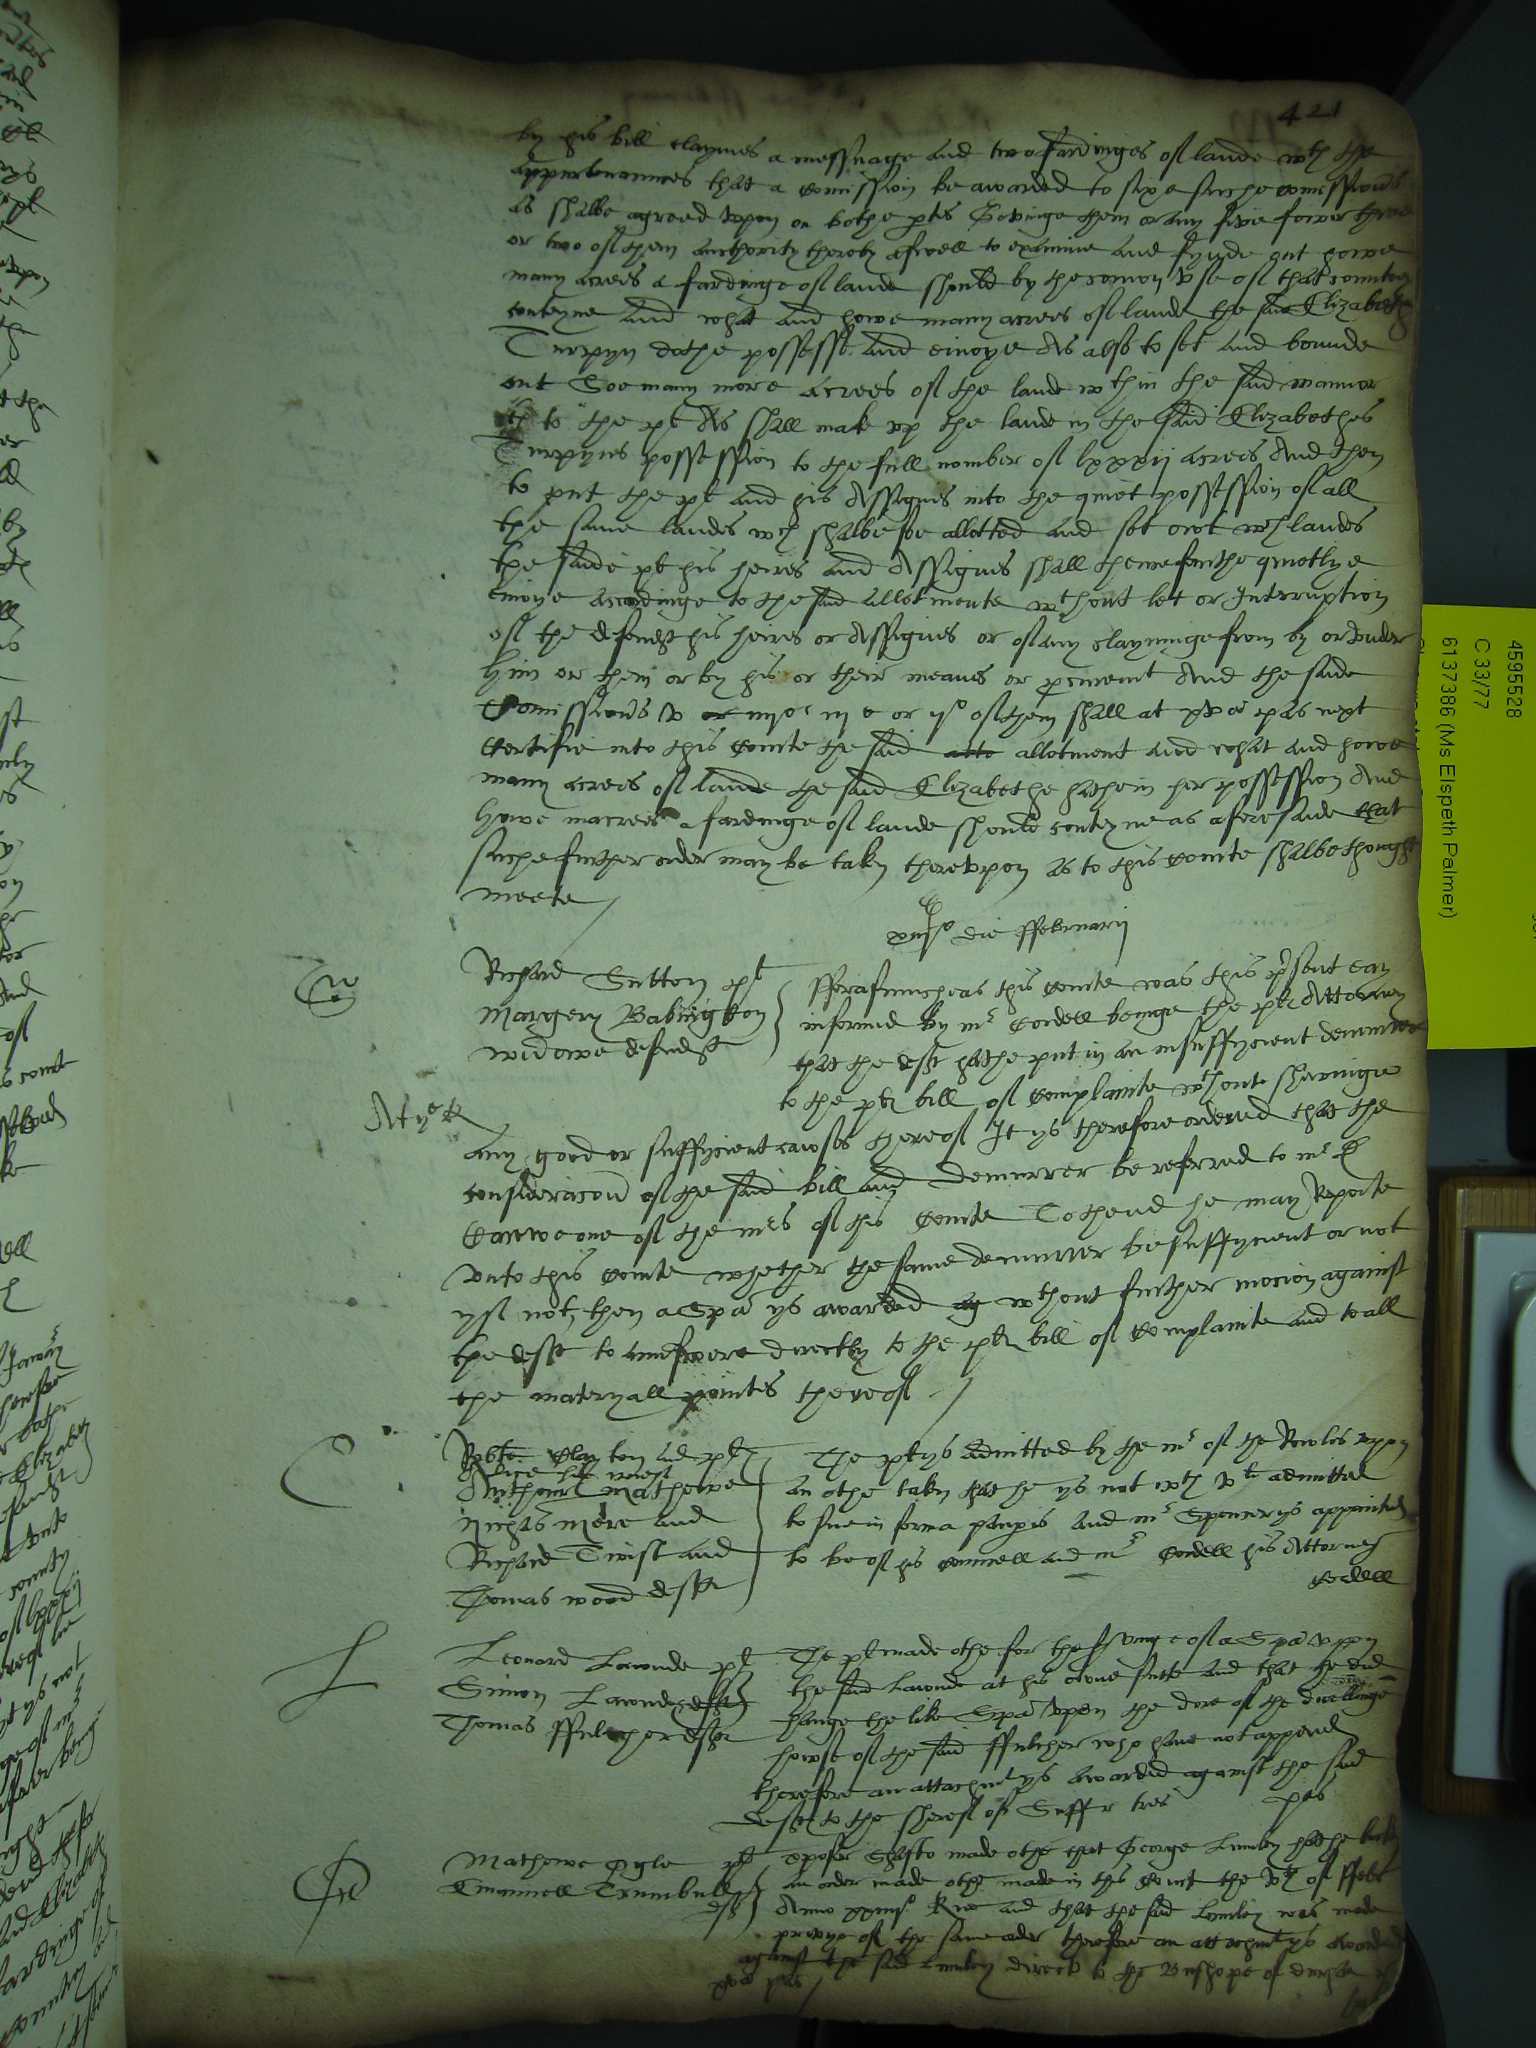 421
by his bill claymes a messuage and two fardinges of lande wth the
appurtenannces that a comission be awarded to sixe suche comissions
as shalbe agreed vpon on bothe ptes Gevinge them or any five fower three
or two of them aucthority thereby aswell to examine and fynde out howe
many acres a fardinge of lande should by the comon vse of that countrey
conteyne And what and howe many acrees of lande the said Elizabeth
Turpyn dothe possesse and enioye As also to set and bounde
out Soe many more acrees of the lande wthin the said mannor
to the pl As shall make vp the lande in the said Elizabethes
Turpyns possession to the full nomber of lxxxij acrees And then
to put the pl and his Assignes into the quiet possession of all
the same landes wch shalbe soe allotted and set owt wch landes
the saide pl his heires and Assignes shall thencefourthe quietlye
enioye accordinge to the said allotmente wthout let or Interruption
of the defendt his heires or Assignes or of any clayminge from by or vnder
him or them or by his or their meanes or procurement And the saide
Comissions v or iiijor iij e or ijo of them shall at xva pas next
certifie into this courte the said allotment and what and howe
many acrees of lande the said Elizabethe hathe in her possession And
howe macrees a fardinge of lande should conteyne as aforesaide that
suche further order may be taken therevpon as to this courte shalbe thought
meete
die ffebruarij
Richard Sutton pl
Margery Babington
widowe defendt
fforasmuch as this courte was this present day
informed by mr Cordell beinge the ples Attorney
that the deft hathe put in an insuffycient demurrer
to the ples bill of complainte wthout shewinge
any good or suffycient causes thereof It ys therefore ordered that the
consideracon of the said bill and demurrer be referred to mr D
Carewe one of the mrs of this Courte To thend he may Reporte
vnto this courte whether the same demurrer be suffycient or not
yf not then a Spa ys awarded ag wthout further mocion against
the deft to aunswere directly to the ples bill of complainte and to all
the materyall pointes thereof
Robte Clayton and pl
Alice his wief
Anthony Mathewe
Nichas Mere and
Richard Twist and
Thomas wood deftes
The pl ys admitted by the mr of the Rowles vpon
an othe taken that he ys not worth vli admitted
to sue in forma pauperis and mr Spencer ys appointed
to be of his councell and mr Cordell his Attorney
Cordell
Leonard Lownde pl
Simon Lownde
Thomas ffulcher deftes
The pl made othe for the servinge of a Spa vpon
the said Lownde at his owne sute And that he did
hange the like Spa vpon the dore of the dwellinge
howse of the said ffulcher who have not appeared
therefore an attachmt ys awarded against the said
deftes to the sheref of Suff tres pas
Mathewe Ogle pl
Emannell Trumbull
deft
made othe that George Lumley hathe broken
an order made othe made in this Court the of ffebr
Anno xxiiijo Rne and that the said Lumley was made
pryvye of the same order therefore an attachmt ys awarded
against the said Lumley direct to the Busshope of
xva pas
4595528
C 33/77
6137386 (Ms Elspeth Palmer)